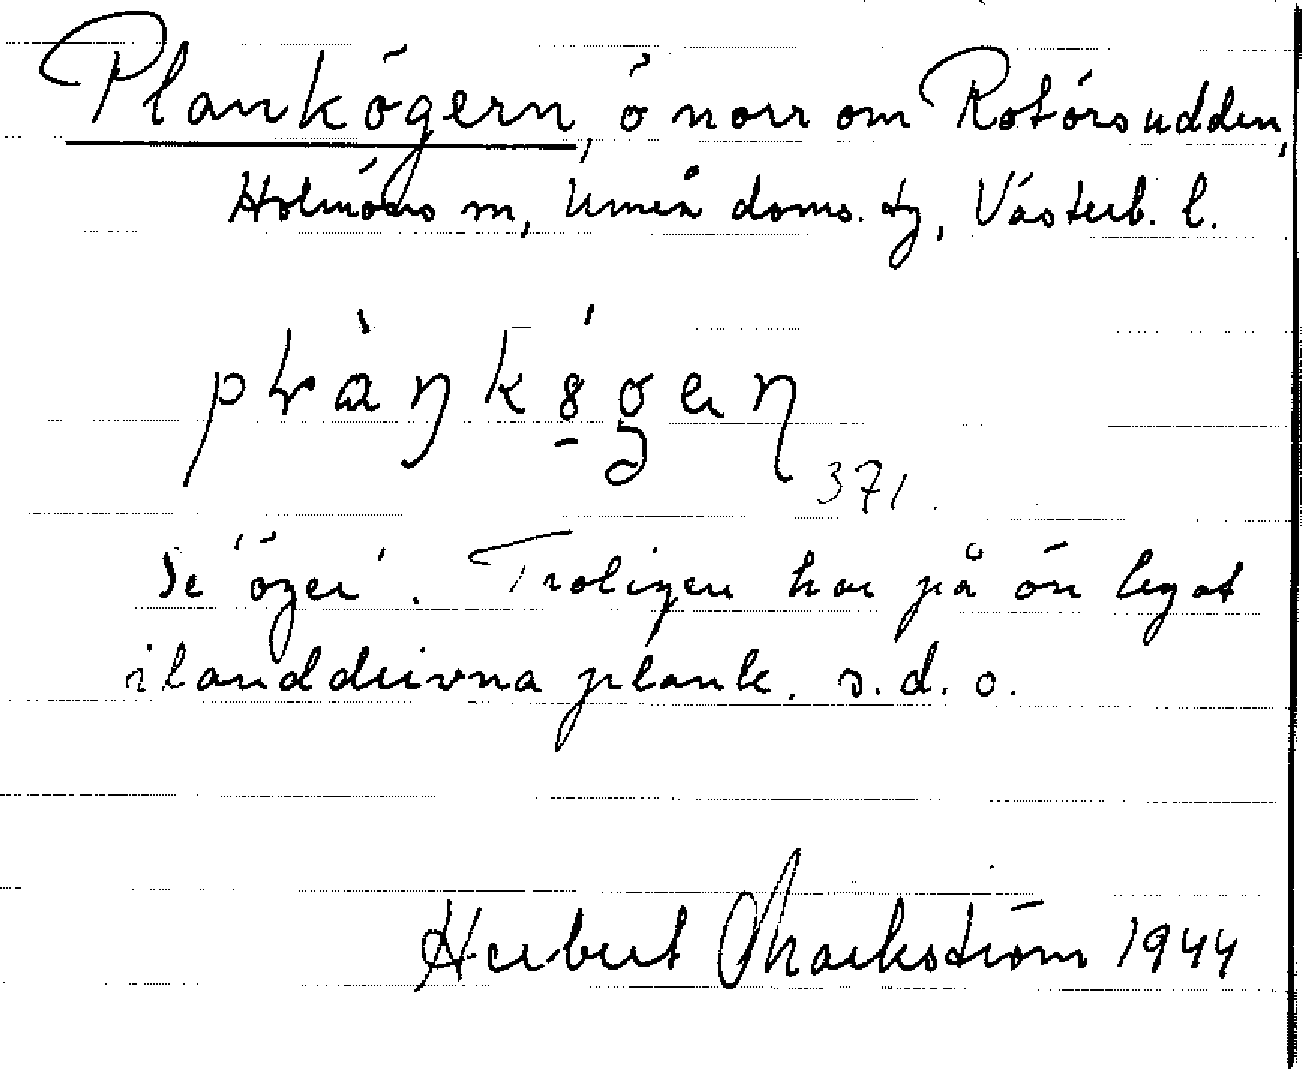 Plankögern, ö norr om Rotörsudden,
Holmöns sn, Umeå doms. tg, Västerb. l.
371.
Se 'öger'. Troligen har på ön legat
ilanddrivna plank. s. d. o.
Herbert Markström 1944